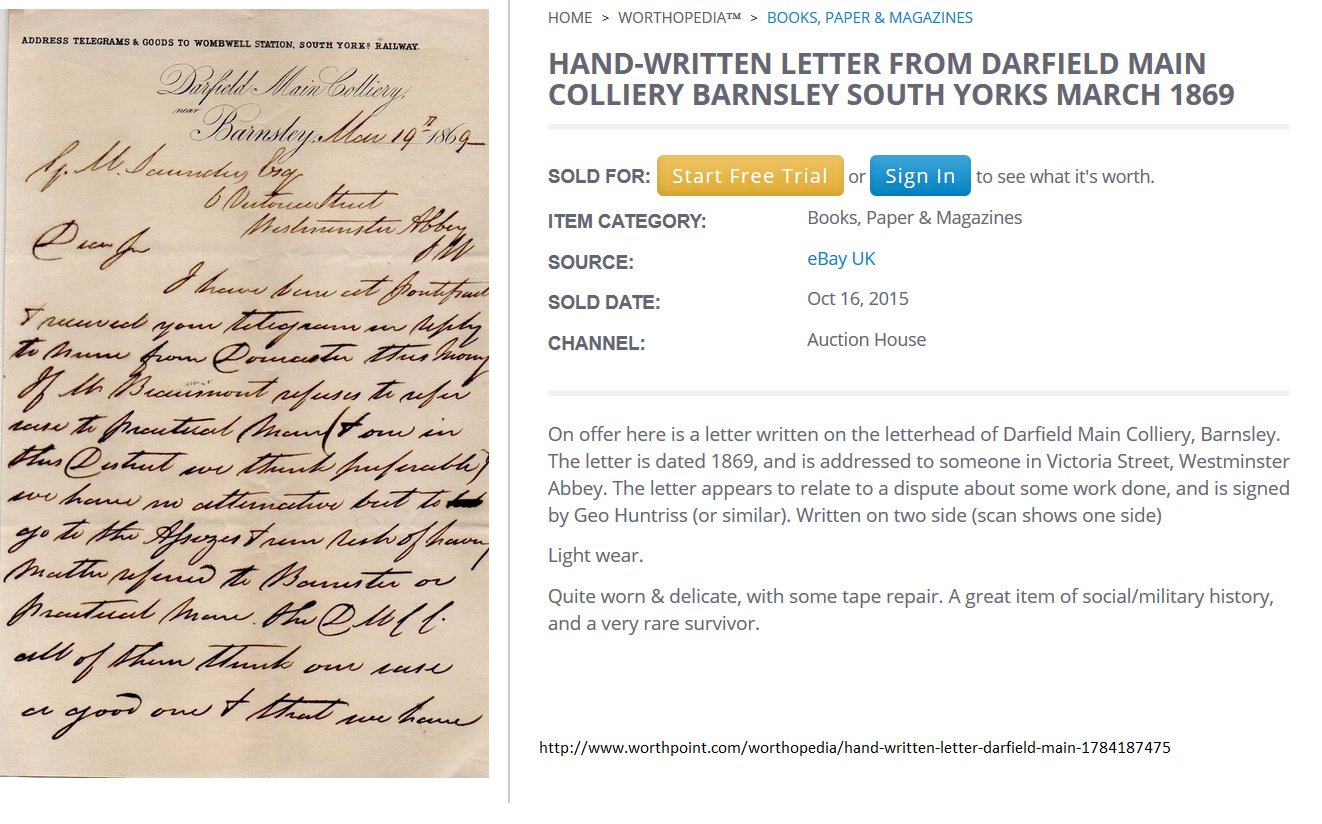 ADDRESS TELEGRAMS & GOODS TO WOMBWELL STATION, SOUTH YORKS RAILWAY.
Darfield Main Colliery,
near
Barnsley, Mar 19th 1869
M. Saunders Esq
6 Victoria Street
Westminster Abbey
S W
Dear Sir
I have been at Pontefract
& received your telegram in reply
to mine from Doncaster this morng
If Mr Beaumont refuses to refer
case to practical Man (& one in
this District we think preferable)
we have no alternative but to
go to the Assizes & run risk of having
matter referred to Barrister or
practical Man. The D M C C.
all of them think our case
a good one & that we have
HOME > WORTHOPEDIA™ > BOOKS, PAPER & MAGAZINES
HAND-WRITTEN LETTER FROM DARFIELD MAIN
COLLIERY BARNSLEY SOUTH YORKS MARCH 1869
SOLD FOR: Start Free Trial or Sign In to see what it's worth.
ITEM CATEGORY: Books, Paper & Magazines
SOURCE: eBay UK
SOLD DATE: Oct 16, 2015
CHANNEL: Auction House
On offer here is a letter written on the letterhead of Darfield Main Colliery, Barnsley.
The letter is dated 1869, and is addressed to someone in Victoria Street, Westminster
Abbey. The letter appears to relate to a dispute about some work done, and is signed
by Geo Huntriss (or similar). Written on two side (scan shows one side)
Light wear.
Quite worn & delicate, with some tape repair. A great item of social/military history,
and a very rare survivor.
http://www.worthpoint.com/worthopedia/hand-written-letter-darfield-main-1784187475